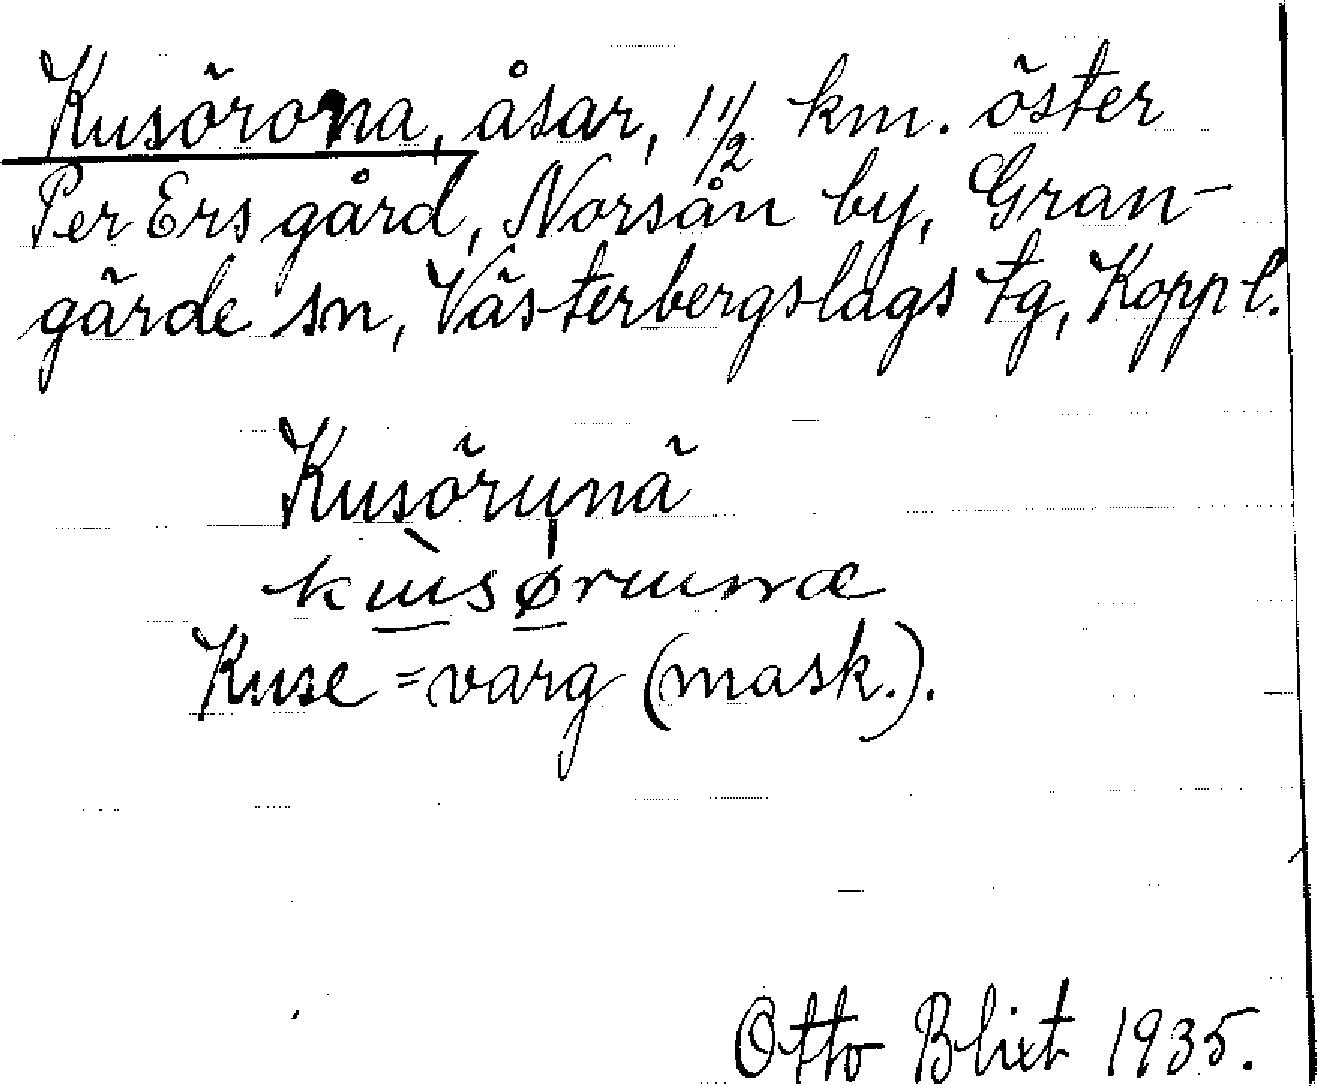 Kusörona, åsar, 1 1/2 km. öster
Per Ers gård, Norsån by, Gran-
gärde sn, Västerbergslags tg, Koppl.
Kusörunä
kusørunæ
Kuse = varg (mask.).
Otto Blixt 1935.